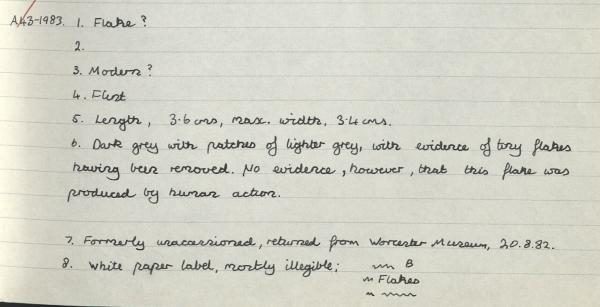 A43-1983. 1. Flake?
2.
3. Modern?
4. Flint
5. Length, 3.6 cms, max. width, 3.4 cms.
6. Dark grey with patches of lighter grey, with evidence of tiny flakes
having been removed. No evidence, however, that this flake was
produced by human action.
7. Formerly unaccessioned, returned from Worcester Museum, 20.8.82.
8. White paper label, mostly illegible; B
Flakes